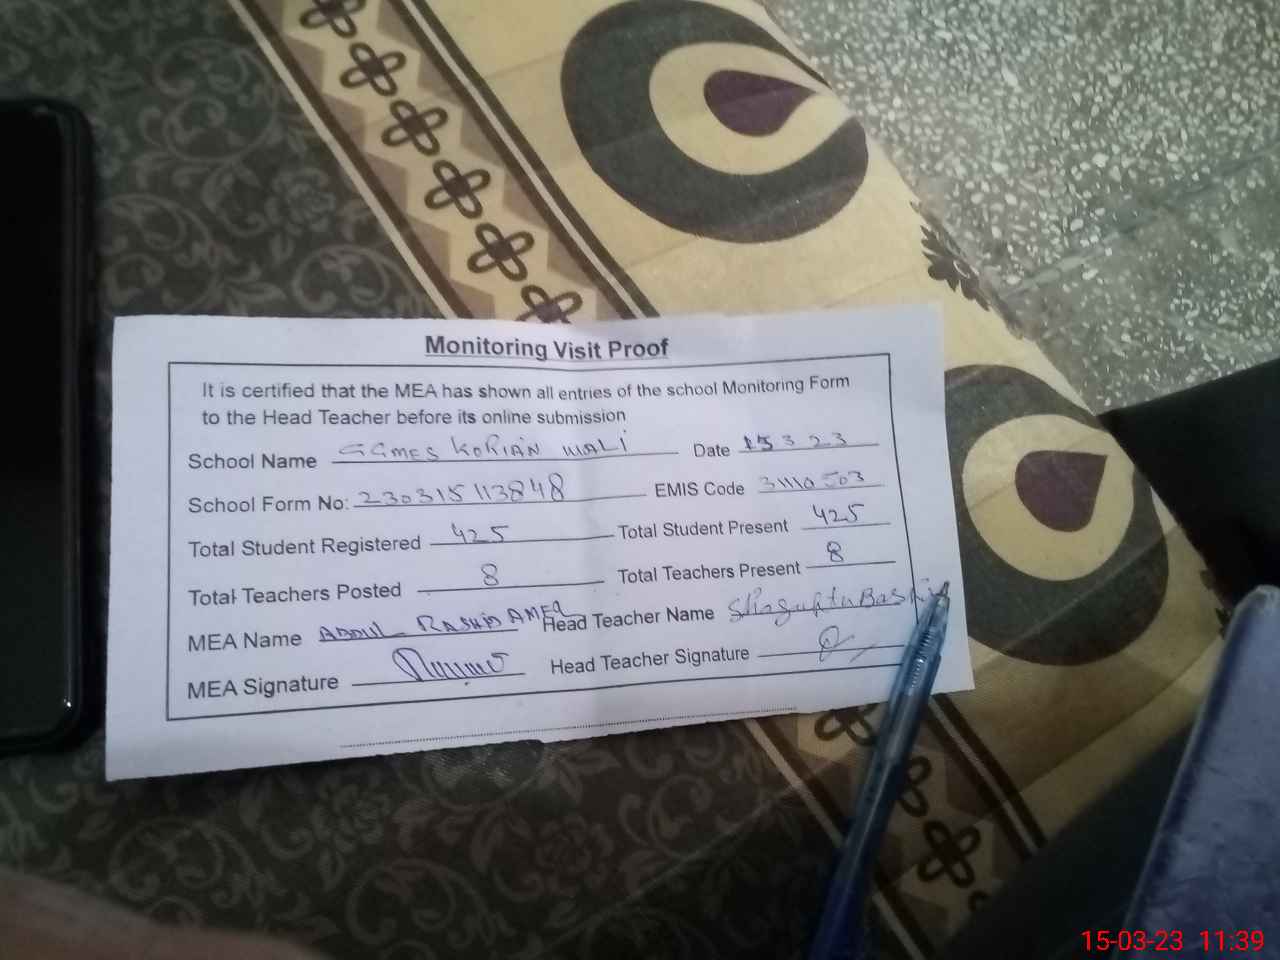 Monitoring Visit Proof
It is certified that the MEA has shown all entries of the school Monitoring Form
to the Head Teacher before its online submission
School Name GGMES KORIAN WALI Date 15 3 23
School Form No: 230315113848 EMIS Code 31110503
Total Student Registered 425 Total Student Present 425
Total Teachers Posted 8 Total Teachers Present 8
MEA Name ABDUL RASHID AMEQ Head Teacher Name Shagufta Bashir
MEA Signature Head Teacher Signature
15-03-23 11:39